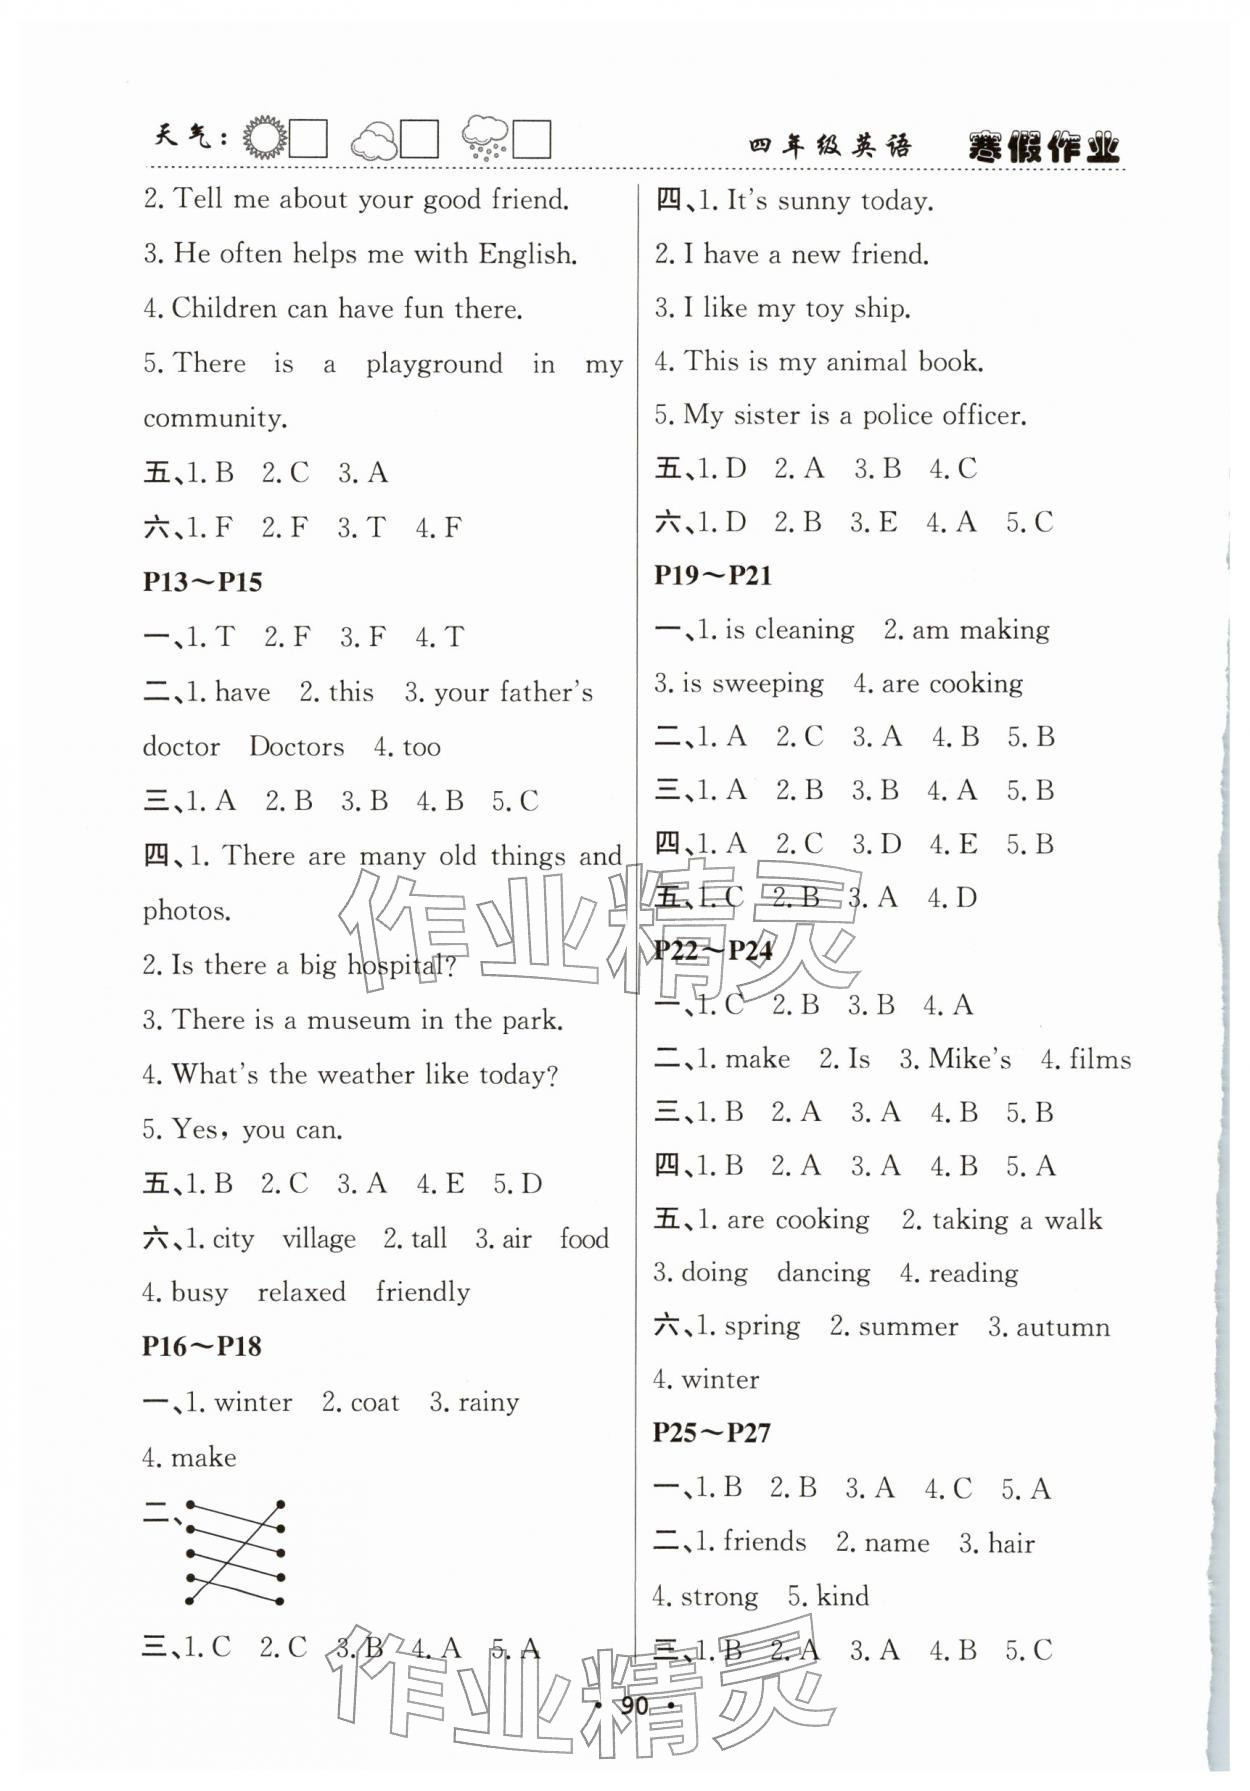 天气：
四年级英语 寒假作业
2. Tell me about your good friend.
3. He often helps me with English.
4. Children can have fun there.
5. There is a playground in my
community.
五、1. B 2. C 3. A
六、1. F 2. F 3. T 4. F
P13～P15
一、1. T 2. F 3. F 4. T
二、1. have 2. this 3. your father's
doctor Doctors 4. too
三、1. A 2. B 3. B 4. B 5. C
四、1. There are many old things and
photos.
2. Is there a big hospital?
3. There is a museum in the park.
4. What's the weather like today?
5. Yes, you can.
五、1. B 2. C 3. A 4. E 5. D
六、1. city village 2. tall 3. air food
4. busy relaxed friendly
P16～P18
一、1. winter 2. coat 3. rainy
4. make
二、
三、1. C 2. C 3. B 4. A 5. A
四、1. It's sunny today.
2. I have a new friend.
3. I like my toy ship.
4. This is my animal book.
5. My sister is a police officer.
五、1. D 2. A 3. B 4. C
六、1. D 2. B 3. E 4. A 5. C
P19～P21
一、1. is cleaning 2. am making
3. is sweeping 4. are cooking
二、1. A 2. C 3. A 4. B 5. B
三、1. A 2. B 3. B 4. A 5. B
四、1. A 2. C 3. D 4. E 5. B
五、1. C 2. B 3. A 4. D
P22～P24
一、1. C 2. B 3. B 4. A
二、1. make 2. Is 3. Mike's 4. films
三、1. B 2. A 3. A 4. B 5. B
四、1. B 2. A 3. A 4. B 5. A
五、1. are cooking 2. taking a walk
3. doing dancing 4. reading
六、1. spring 2. summer 3. autumn
4. winter
P25～P27
一、1. B 2. B 3. A 4. C 5. A
二、1. friends 2. name 3. hair
4. strong 5. kind
三、1. B 2. A 3. A 4. B 5. C
作业精灵
作业精灵
· 90 ·